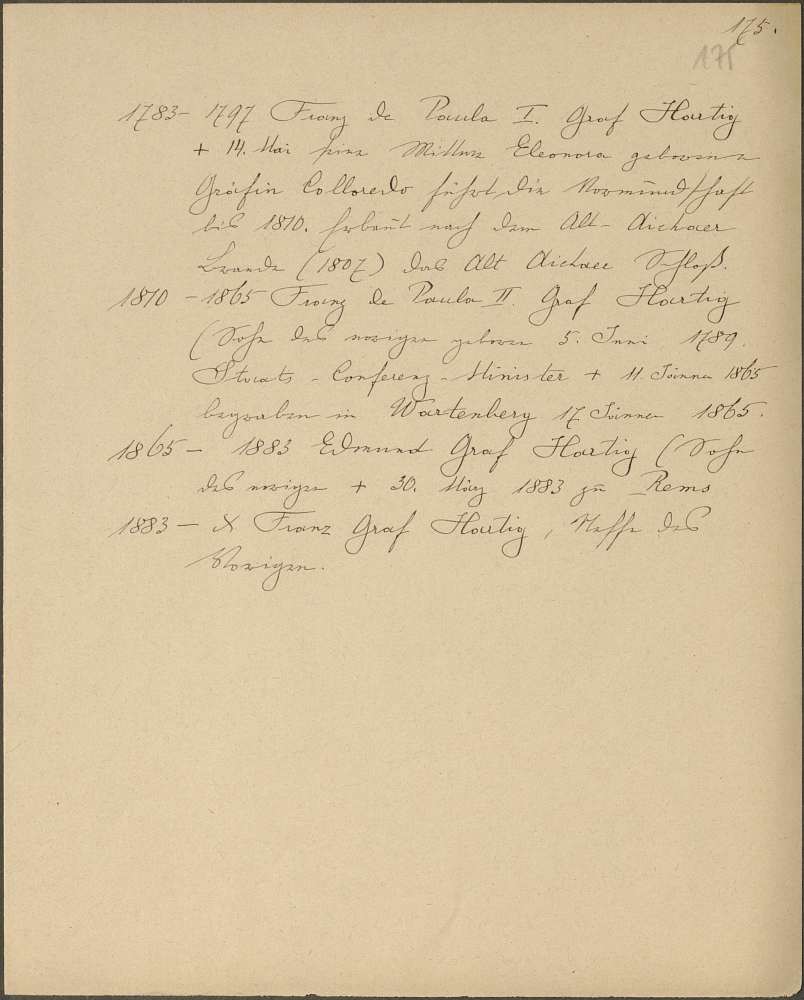 175.
175
1783- 1797 Franz de Paula I. Graf Hartig
+ 14. Mai seine Wittwe Eleonora geborene
Gräfin Colloredo führt die Vormundschaft
bis 1810. Erbaut nach dem Alt-Aichaer
Brande (1807) das Alt Aichaer Schloß.
1810 - 1865 Franz de Paula II. Graf Hartig
(Sohn des vorigen geboren 5. Juni 1789.
Staats-Conferenz-Minister + 11. Jänner 1865
begraben in Wartenberg 17 Jänner 1865.
1865 - 1883 Edmund Graf Hartig (Sohn
des vorigen + 30. März 1883 zu Rems
1883 - X Franz Graf Hartig, Neffe des
Vorigen.